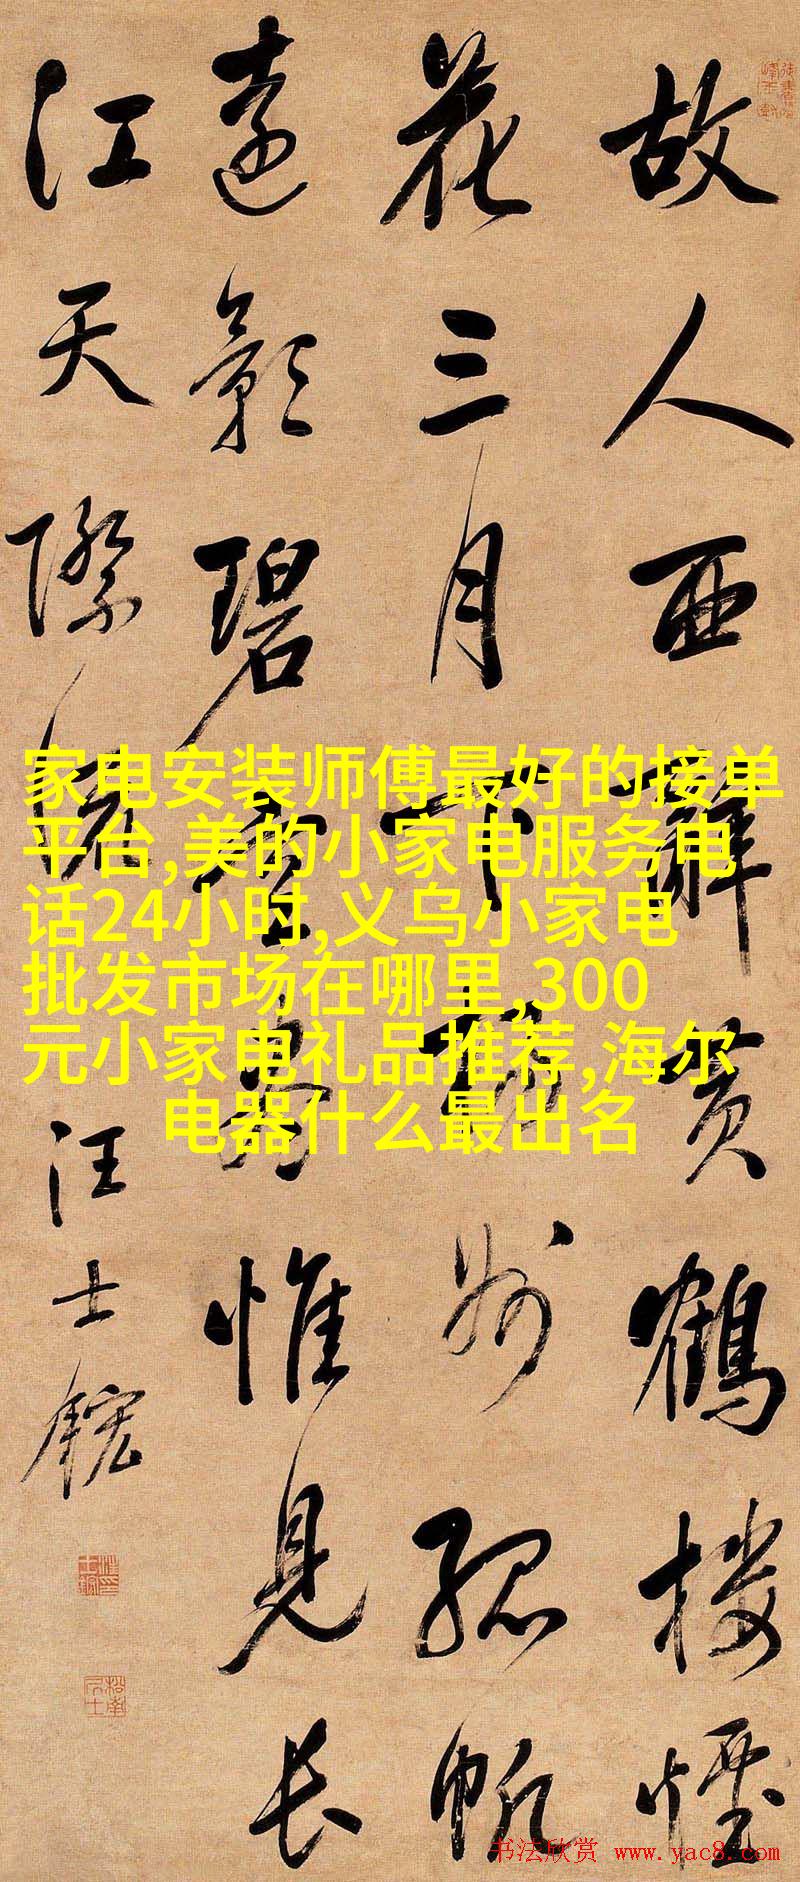 故人西辭黃鶴樓煙
花三月下揚州孤帆
遠影碧空盡惟見長
江天際流
汪士鋐
家电安装师傅最好的接单
平台,美的小家电服务电
话24小时,义乌小家电
批发市场在哪里,300
元小家电礼品推荐,海尔
电器什么最出名
书法欣赏 www.yac8.com